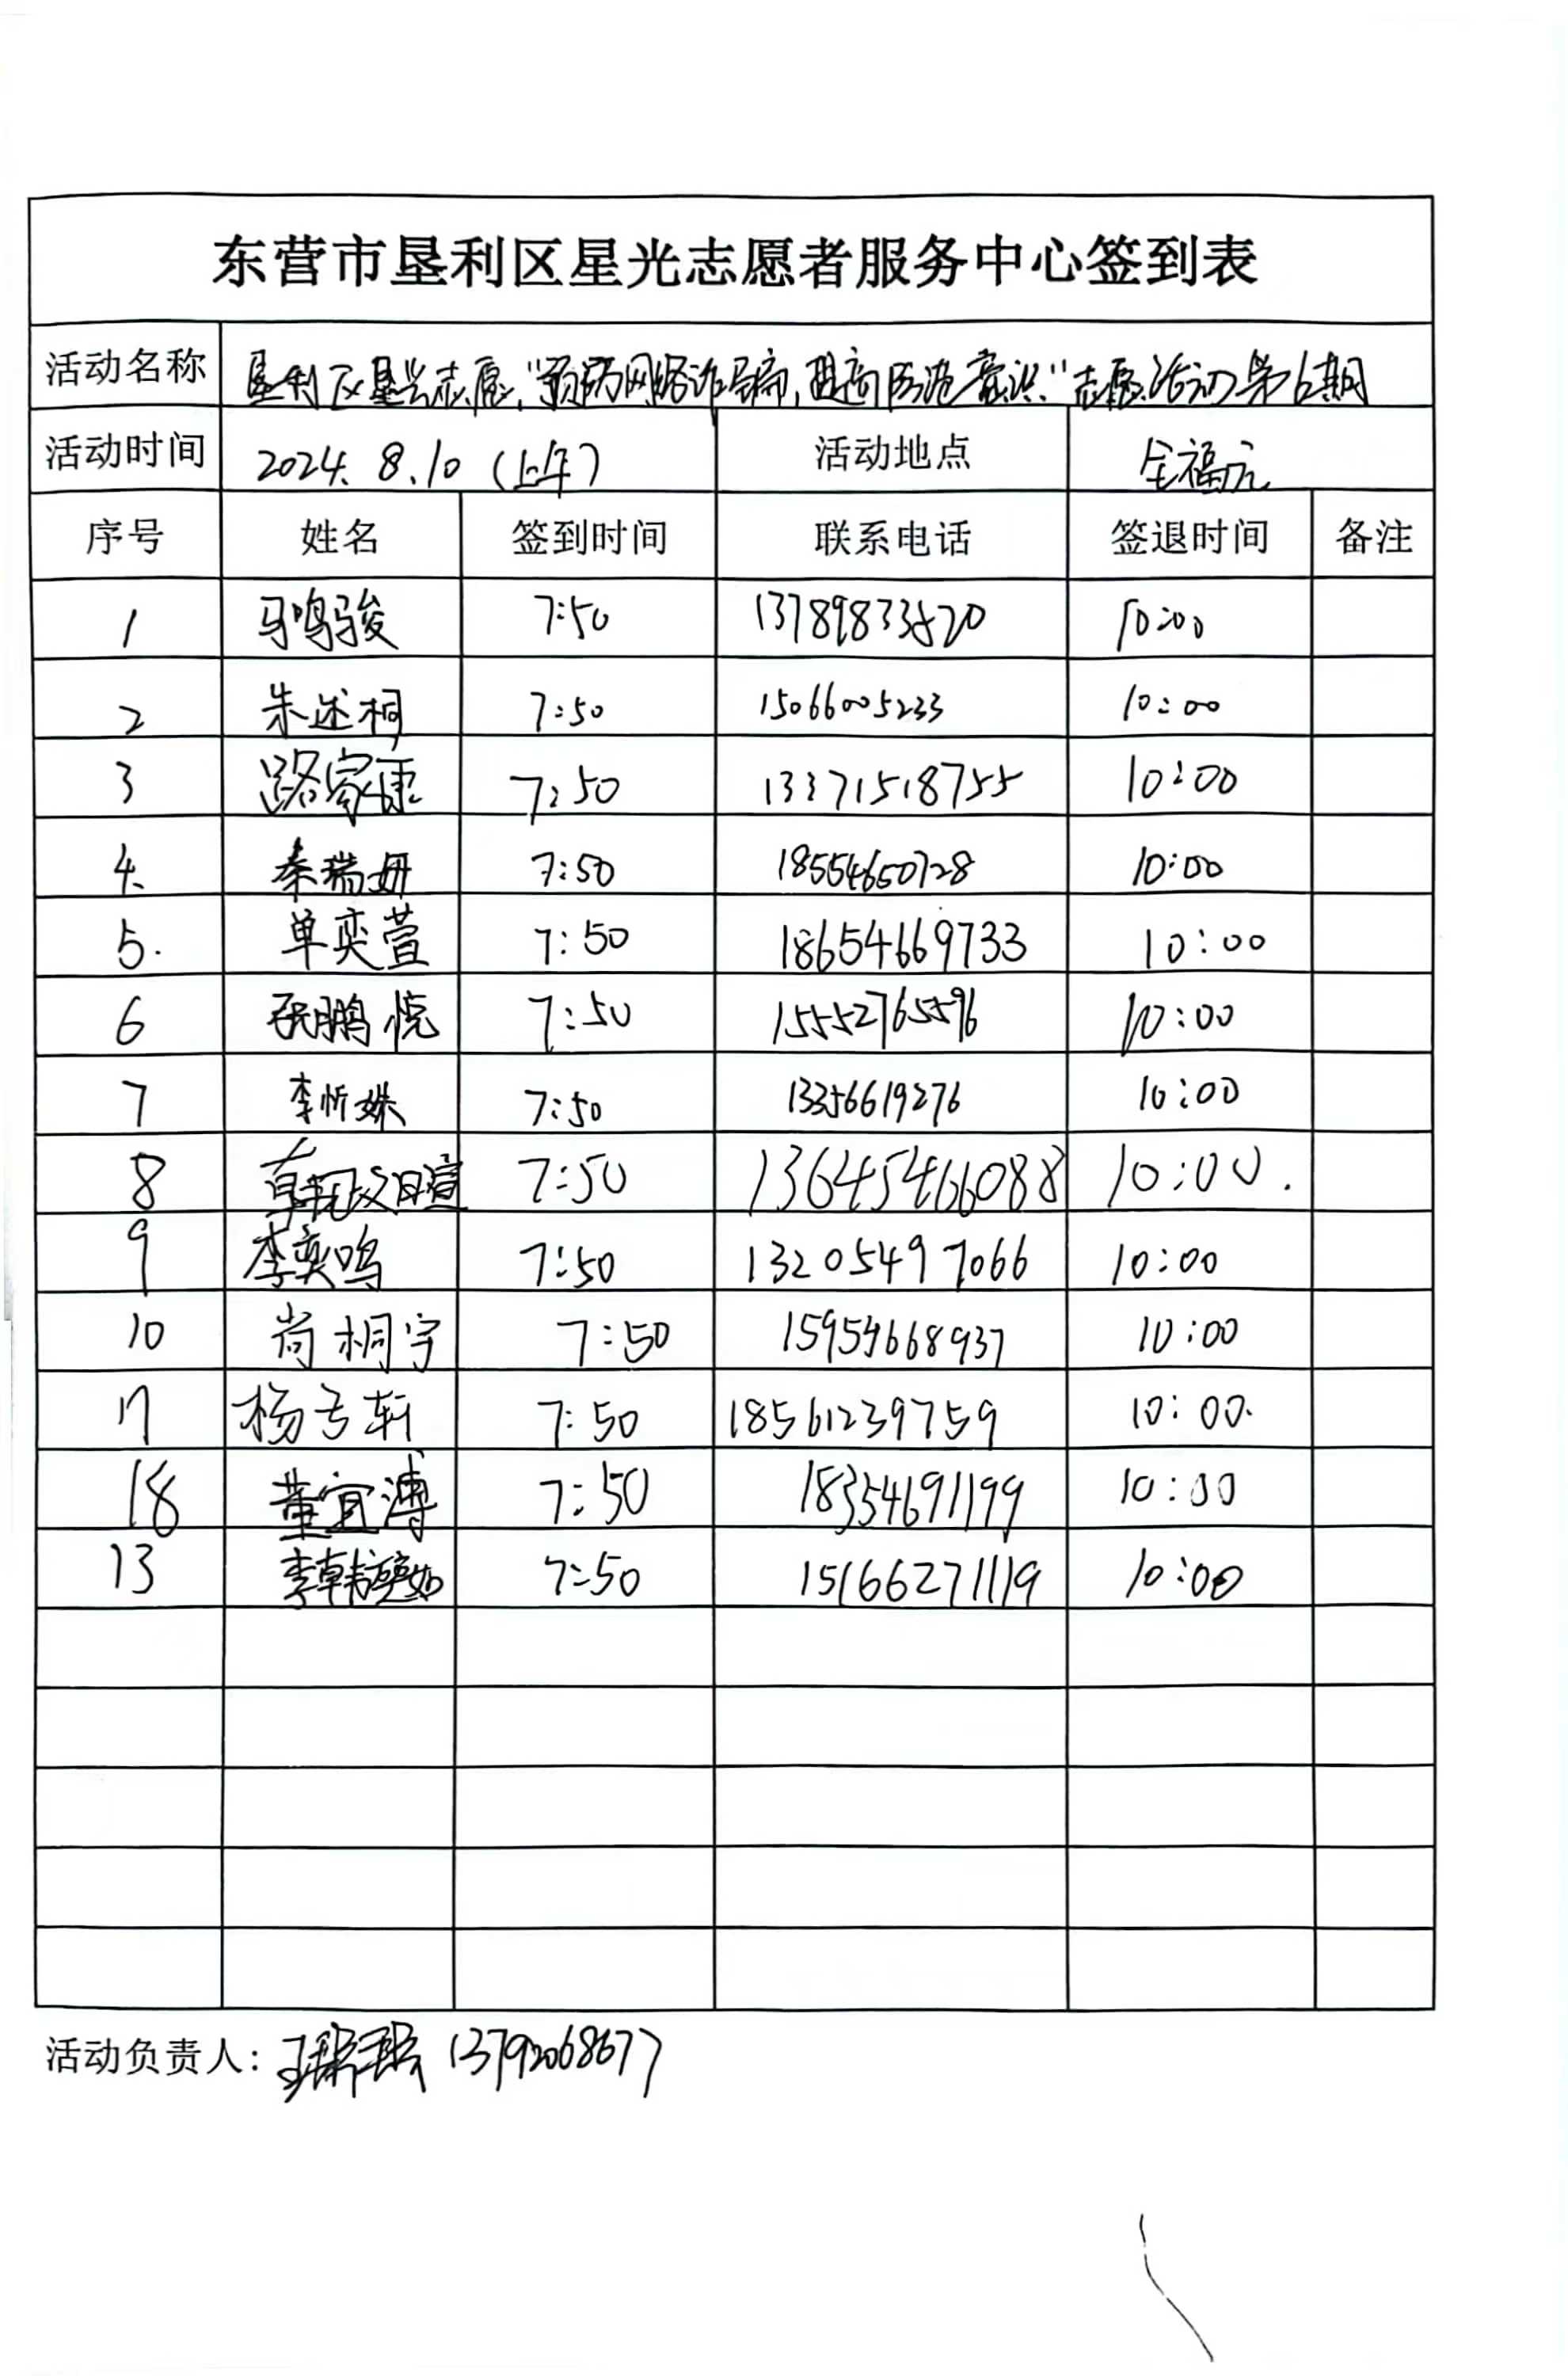 东营市垦利区星光志愿者服务中心签到表
活动名称 垦利区星光志愿“预防网络诈骗,提高防范意识”志愿活动第6期
活动时间 2024. 8.10 (上午) 活动地点 全福元
序号 姓名 签到时间 联系电话 签退时间 备注
1 马鸣骏 7:50 13789833520 10:00
2 朱述桐 7:50 15066005233 10:00
3 路家康 7:50 13371518755 10:00
4. 秦瑞妍 7:50 18554650728 10:00
5. 单奕萱 7:50 18654669733 10:00
6 张鹏悦 7:50 15552765596 10:00
7 李忻姝 7:50 13356619276 10:00
8 7:50 13645466088 10:00.
9 李奕鸣 7:50 13205497066 10:00
10 尚桐宇 7:50 15954668937 10:00
11 杨 轩 7:50 18561239759 10:00.
18 董宜溥 7:50 18354691199 10:00
13 李韩奕如 7:50 15166271119 10:00
活动负责人: 13792068677